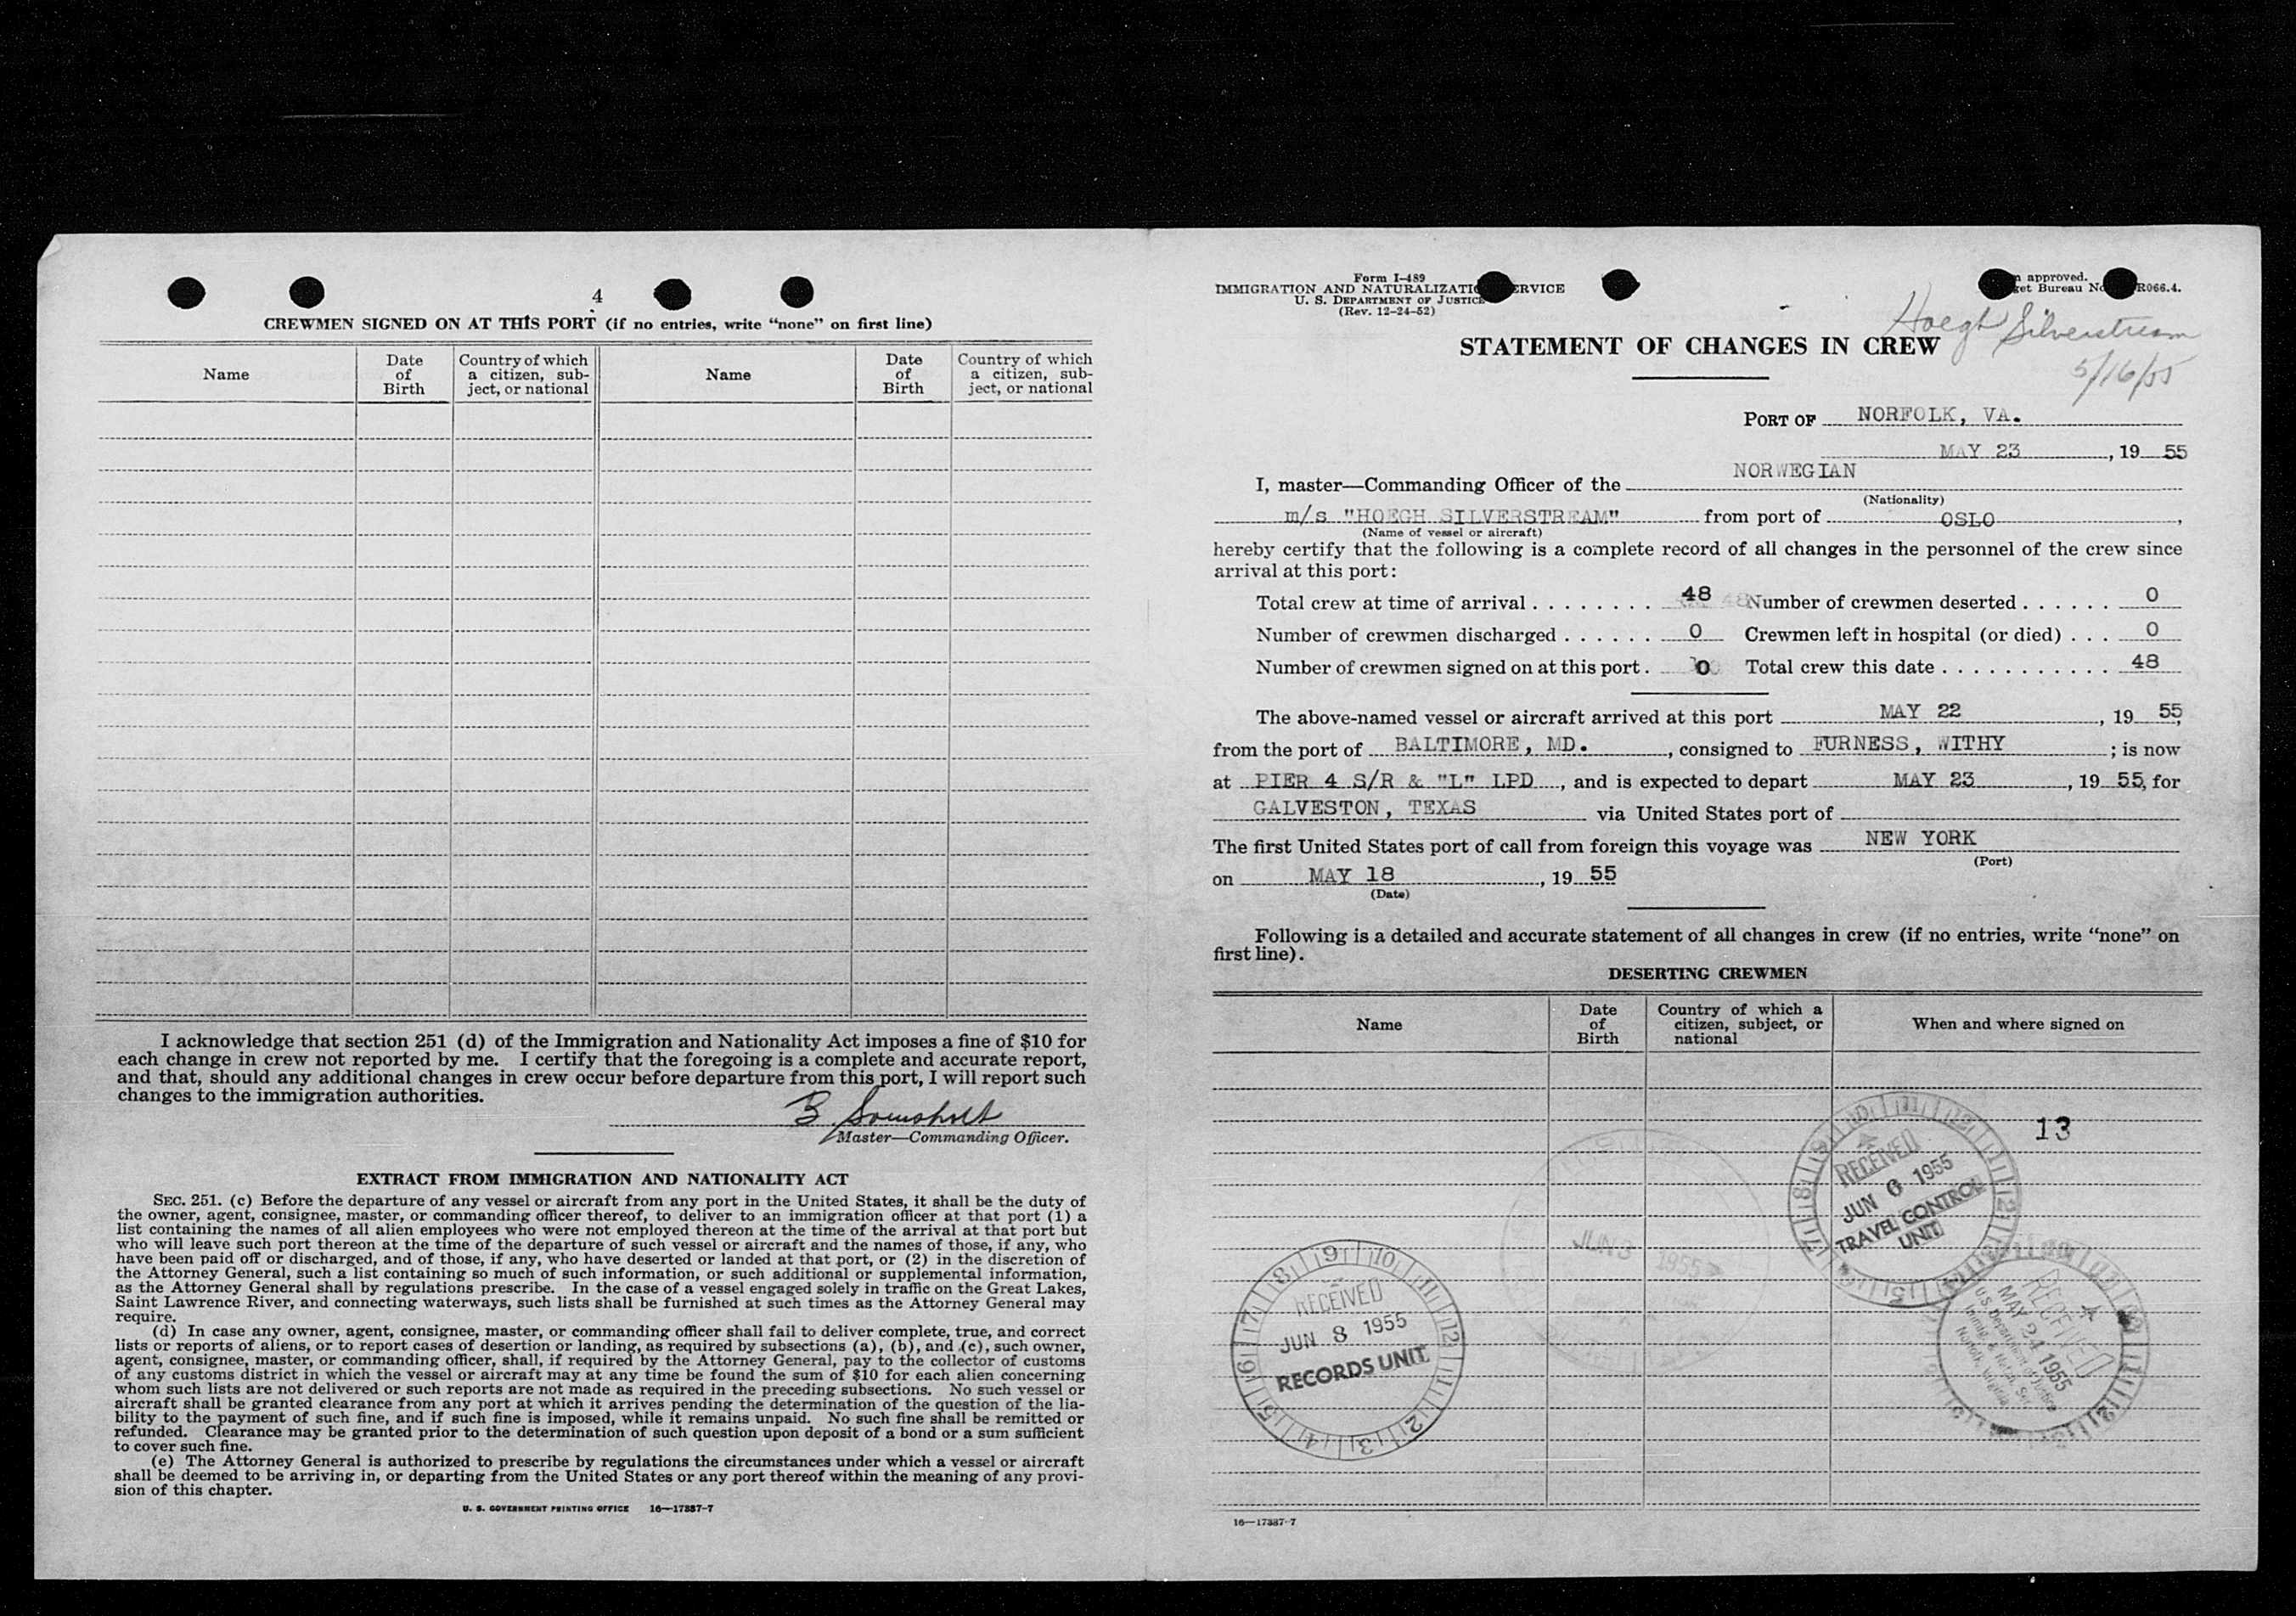 4
CREWMEN SIGNED ON AT THIS PORT (if no entries, write “none” on first line)
Name
Date of Birth
Country of which a citizen, sub-ject, or national
Name
Date of Birth
Country of which a citizen, sub-ject, or national
I acknowledge that section 251 (d) of the Immigration and Nationality Act imposes a fine of $10 for
each change in crew not reported by me. I certify that the foregoing is a complete and accurate report,
and that, should any additional changes in crew occur before departure from this port, I will report such
changes to the immigration authorities.
B
Master—Commanding Officer.
EXTRACT FROM IMMIGRATION AND NATIONALITY ACT
SEC. 251. (c) Before the departure of any vessel or aircraft from any port in the United States, it shall be the duty of
the owner, agent, consignee, master, or commanding officer thereof, to deliver to an immigration officer at that port (1) a
list containing the names of all alien employees who were not employed thereon at the time of the arrival at that port but
who will leave such port thereon at the time of the departure of such vessel or aircraft and the names of those, if any, who
have been paid off or discharged, and of those, if any, who have deserted or landed at that port, or (2) in the discretion of
the Attorney General, such a list containing so much of such information, or such additional or supplemental information,
as the Attorney General shall by regulations prescribe. In the case of a vessel engaged solely in traffic on the Great Lakes,
Saint Lawrence River, and connecting waterways, such lists shall be furnished at such times as the Attorney General may
require.
(d) In case any owner, agent, consignee, master, or commanding officer shall fail to deliver complete, true, and correct
lists or reports of aliens, or to report cases of desertion or landing, as required by subsections (a), (b), and (c), such owner,
agent, consignee, master, or commanding officer, shall, if required by the Attorney General, pay to the collector of customs
of any customs district in which the vessel or aircraft may at any time be found the sum of $10 for each alien concerning
whom such lists are not delivered or such reports are not made as required in the preceding subsections. No such vessel or
aircraft shall be granted clearance from any port at which it arrives pending the determination of the question of the lia-
bility to the payment of such fine, and if such fine is imposed, while it remains unpaid. No such fine shall be remitted or
refunded. Clearance may be granted prior to the determination of such question upon deposit of a bond or a sum sufficient
to cover such fine.
(e) The Attorney General is authorized to prescribe by regulations the circumstances under which a vessel or aircraft
shall be deemed to be arriving in, or departing from the United States or any port thereof within the meaning of any provi-
sion of this chapter.
U. S. GOVERNMENT PRINTING OFFICE 16—17387-7
Form I-489
IMMIGRATION AND NATURALIZATIO ERVICE
U. S. DEPARTMENT OF JUSTICE
(Rev. 12-24-52)
approved.
et Bureau No. R066.4.
Hoegh Silverstream
5/16/55
STATEMENT OF CHANGES IN CREW
PORT OF NORFOLK, VA.
MAY 23, 19 55
I, master—Commanding Officer of the NORWEGIAN
(Nationality)
m/s "HOEGH SILVERSTREAM" from port of OSLO,
(Name of vessel or aircraft)
hereby certify that the following is a complete record of all changes in the personnel of the crew since
arrival at this port:
Total crew at time of arrival . . . . . . . . 48 Number of crewmen deserted . . . . . . 0
Number of crewmen discharged . . . . . . 0 Crewmen left in hospital (or died) . . . 0
Number of crewmen signed on at this port . 0 Total crew this date . . . . . . . . . . . 48
The above-named vessel or aircraft arrived at this port MAY 22, 19 55,
from the port of BALTIMORE, MD., consigned to FURNESS, WITHY; is now
at PIER 4 S/R & "L" LPD, and is expected to depart MAY 23, 19 55, for
GALVESTON, TEXAS via United States port of
The first United States port of call from foreign this voyage was NEW YORK
(Port)
on MAY 18, 19 55
(Date)
Following is a detailed and accurate statement of all changes in crew (if no entries, write “none” on
first line).
DESERTING CREWMEN
Name
Date of Birth
Country of which a citizen, subject, or national
When and where signed on
13
RECEIVED
JUN 6 1955
TRAVEL CONTROL
UNIT
JUN 3 1955
RECEIVED
JUN 8 1955
RECORDS UNIT
RECEIVED
MAY 24 1955
U.S. Department of Justice
Immig. & Natur. Ser.
Norfolk, Virginia
16—17387-7